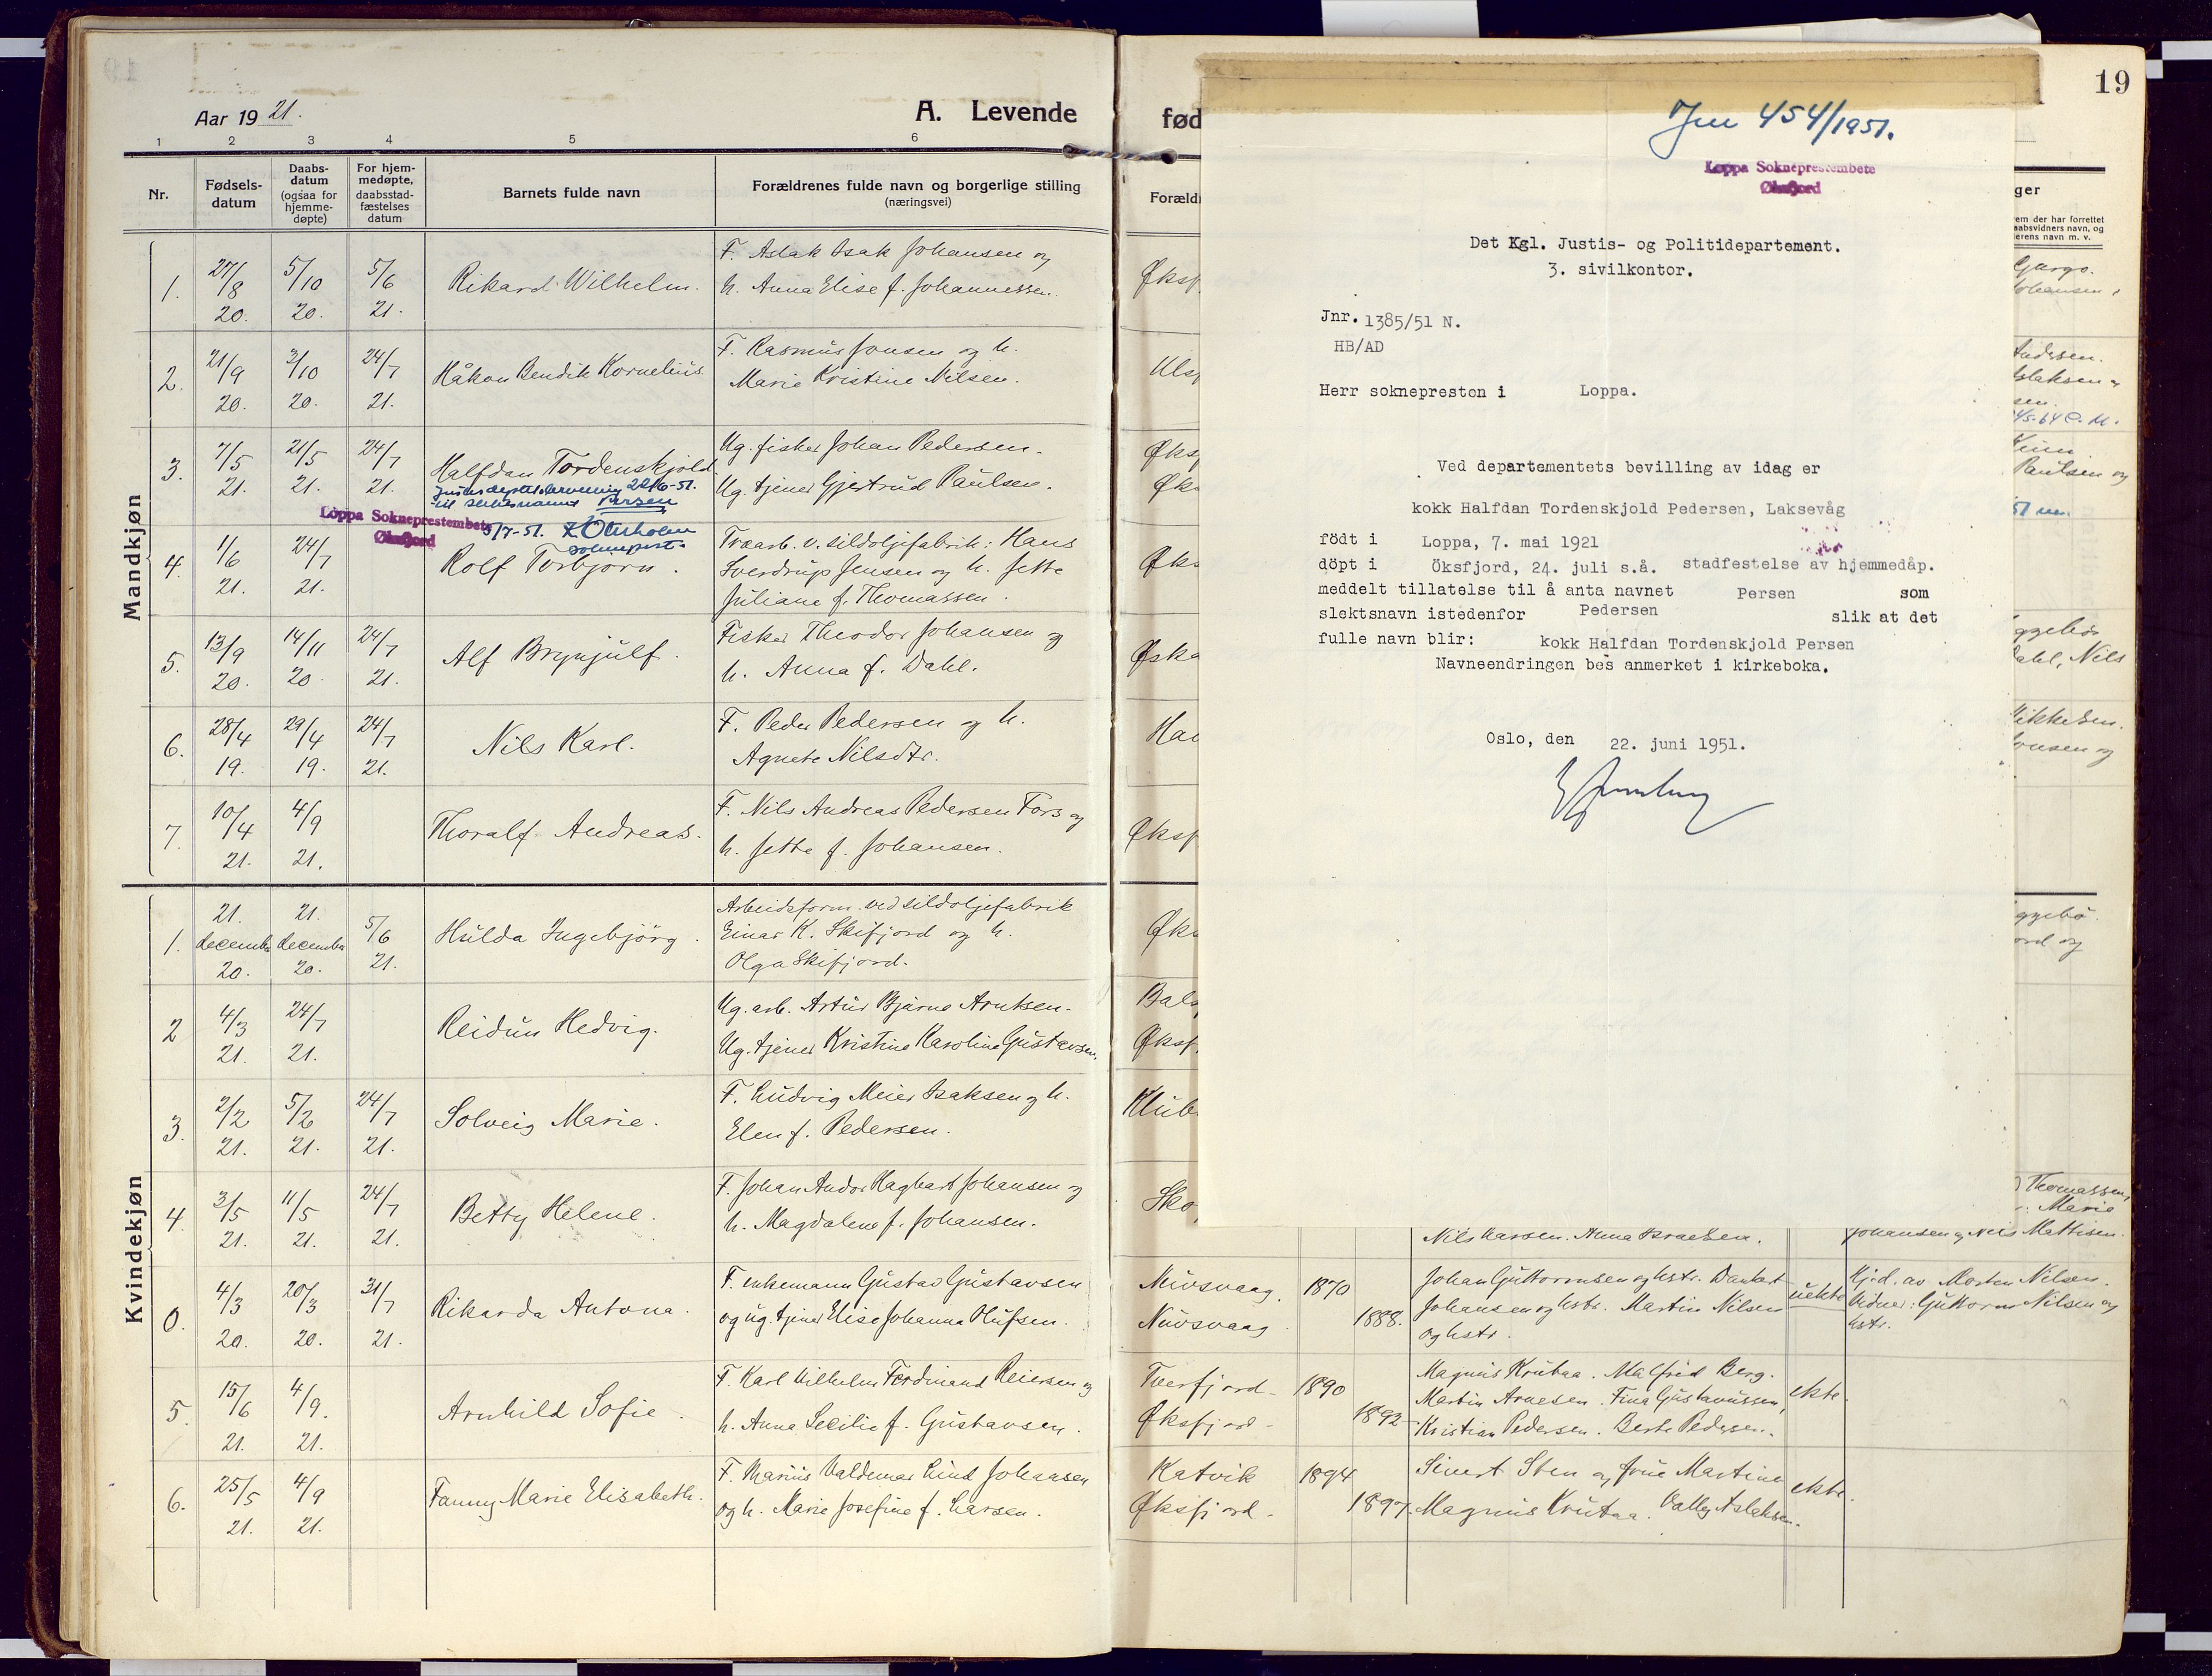 Aar 1921.
A. Levende
1 2 3 4 5 6
Nr.
Fødsels-
datum
Daabs-
datum
(ogsaa for
hjemme-
døpte)
For hjem-
medøpte,
daabsstad-
fæstelses
datum
Barnets fulde navn
Forældrenes fulde navn og borgerlige stilling
(næringsvei)
Mandkjøn
1. 27/8 20. 5/10 20. 5/6 21. Rikard Wilhelm.
F. Aslak Isak Johansen og
h. Anna Elise f. Johannessen.
2. 21/9 20. 3/10 20. 24/7 21. Håkon Bendik Kornelius
F. Rasmus Jonsen og h.
Marie Kristine Nilsen.
3. 7/5 21. 21/5 21. 24/7 21. Halfdan Tordenskjold
22/6-51.
Persen
Loppa Sokneprestembete
Øksfjord
5/7-51.
Ug. fisker Johan Pedersen.
Ug. tjener Gjertrud Paulsen.
4. 1/6 21. 24/7 21. Rolf Torbjørn.
Hans
Sverdrup Jensen og h. Jette
Juliane f. Thomassen.
5. 13/9 20. 14/11 20. 24/7 21. Alf Brynjulf.
Fisker Theodor Johansen og
h. Anna f. Dahl.
6. 28/4 19. 29/4 19. 24/7 21. Nils Karl.
F. Peder Pedersen og h.
Agnete Nilsdtr.
7. 10/4 21. 4/9 21. Thoralf Andreas.
F. Nils Andreas Pedersen Fors og
h. Jette f. Johansen.
Kvindekjøn
1. 21. december 20. 21. december 20. 5/6 21. Hulda Ingebjörg.
Arbeidsform. ved sildoljefabrik
Einar K. Skifjord og h.
Olga Skifjord.
2 4/3 21. 24/7 21. Reidun Hedvig.
Ug. arb. Artur Bjarne Arntsen.
Ug. tjener Kristine Karoline Gustavsen.
3. 2/2 21. 5/2 21. 24/7 21. Solveig Marie.
F. Ludvig Meier Isaksen og h.
Elen f. Pedersen.
4. 3/5 21. 11/5 21. 24/7 21. Betty Helene.
F. Johan Andor Hagbart Johansen og
h. Magdalene f. Johansen.
0. 4/3 20. 20/3 20. 31/7 21. Rikarda Antona.
F. enkemann Gustav Gustavsen
og ug. tjener Elise Johanna Olufsen.
5. 15/6 21. 4/9. 21. Arnhild Sofie.
F. Karl Wilhelm Ferdinand Reiersen og
h. Anna Secilie f. Gustavsen.
6. 25/5 21. 4/9 21. Fanny Marie Elisabeth.
F. Marius Valdemar Lind Johansen
og h. Marie Josefine f. Larsen.
19
fød
Foræld
ger
em der har forrettet
aabsvidners navn, og
erens navn m. v.
Jnr 454/1951.
Loppa Sokneprestembete
Øksfjord
Det Kgl. Justis- og Politidepartement.
3. sivilkontor.
Jnr. 1385/51 N.
HB/AD
Herr soknepresten i Loppa.
Ved departementets bevilling av idag er
kokk Halfdan Tordenskjold Pedersen, Laksevåg
født i Loppa, 7. mai 1921
döpt i Öksfjord, 24. juli s.å. stadfestelse av hjemmedåp.
meddelt tillatelse til å anta navnet Persen som
slektsnavn istedenfor Pedersen slik at det
fulle navn blir: kokk Halfdan Tordenskjold Persen
Navneendringen bes anmerket i kirkeboka.
Oslo, den 22. juni 1951.
Thomassen,
Marie
Nils Larsen. Anna Israelsen.
Johansen og Nils Mattisen.
Nuvsvaag. 1870
Nuvsvaag. 1888.
Johan Guttormsen og hstr. Daniel
Johansen og hstr. Martin Nilsen
og hstr.
uekte
Hjd. av Morten Nilsen.
Vidner: Guttorm Nilsen og
hstr.
Tverfjord 1890
Øksfjord 1892
Magnus Krutaa. Malfrid Berg.
Martin Arnesen. Fina Gustavussen,
Kristian Pedersen. Berte Pedersen.
ekte.
Katvik 1894
Øksfjord 1897.
Sivert Sten og frue Martine
Magnus Krutaa. Valley Aslaksen.
ekte.